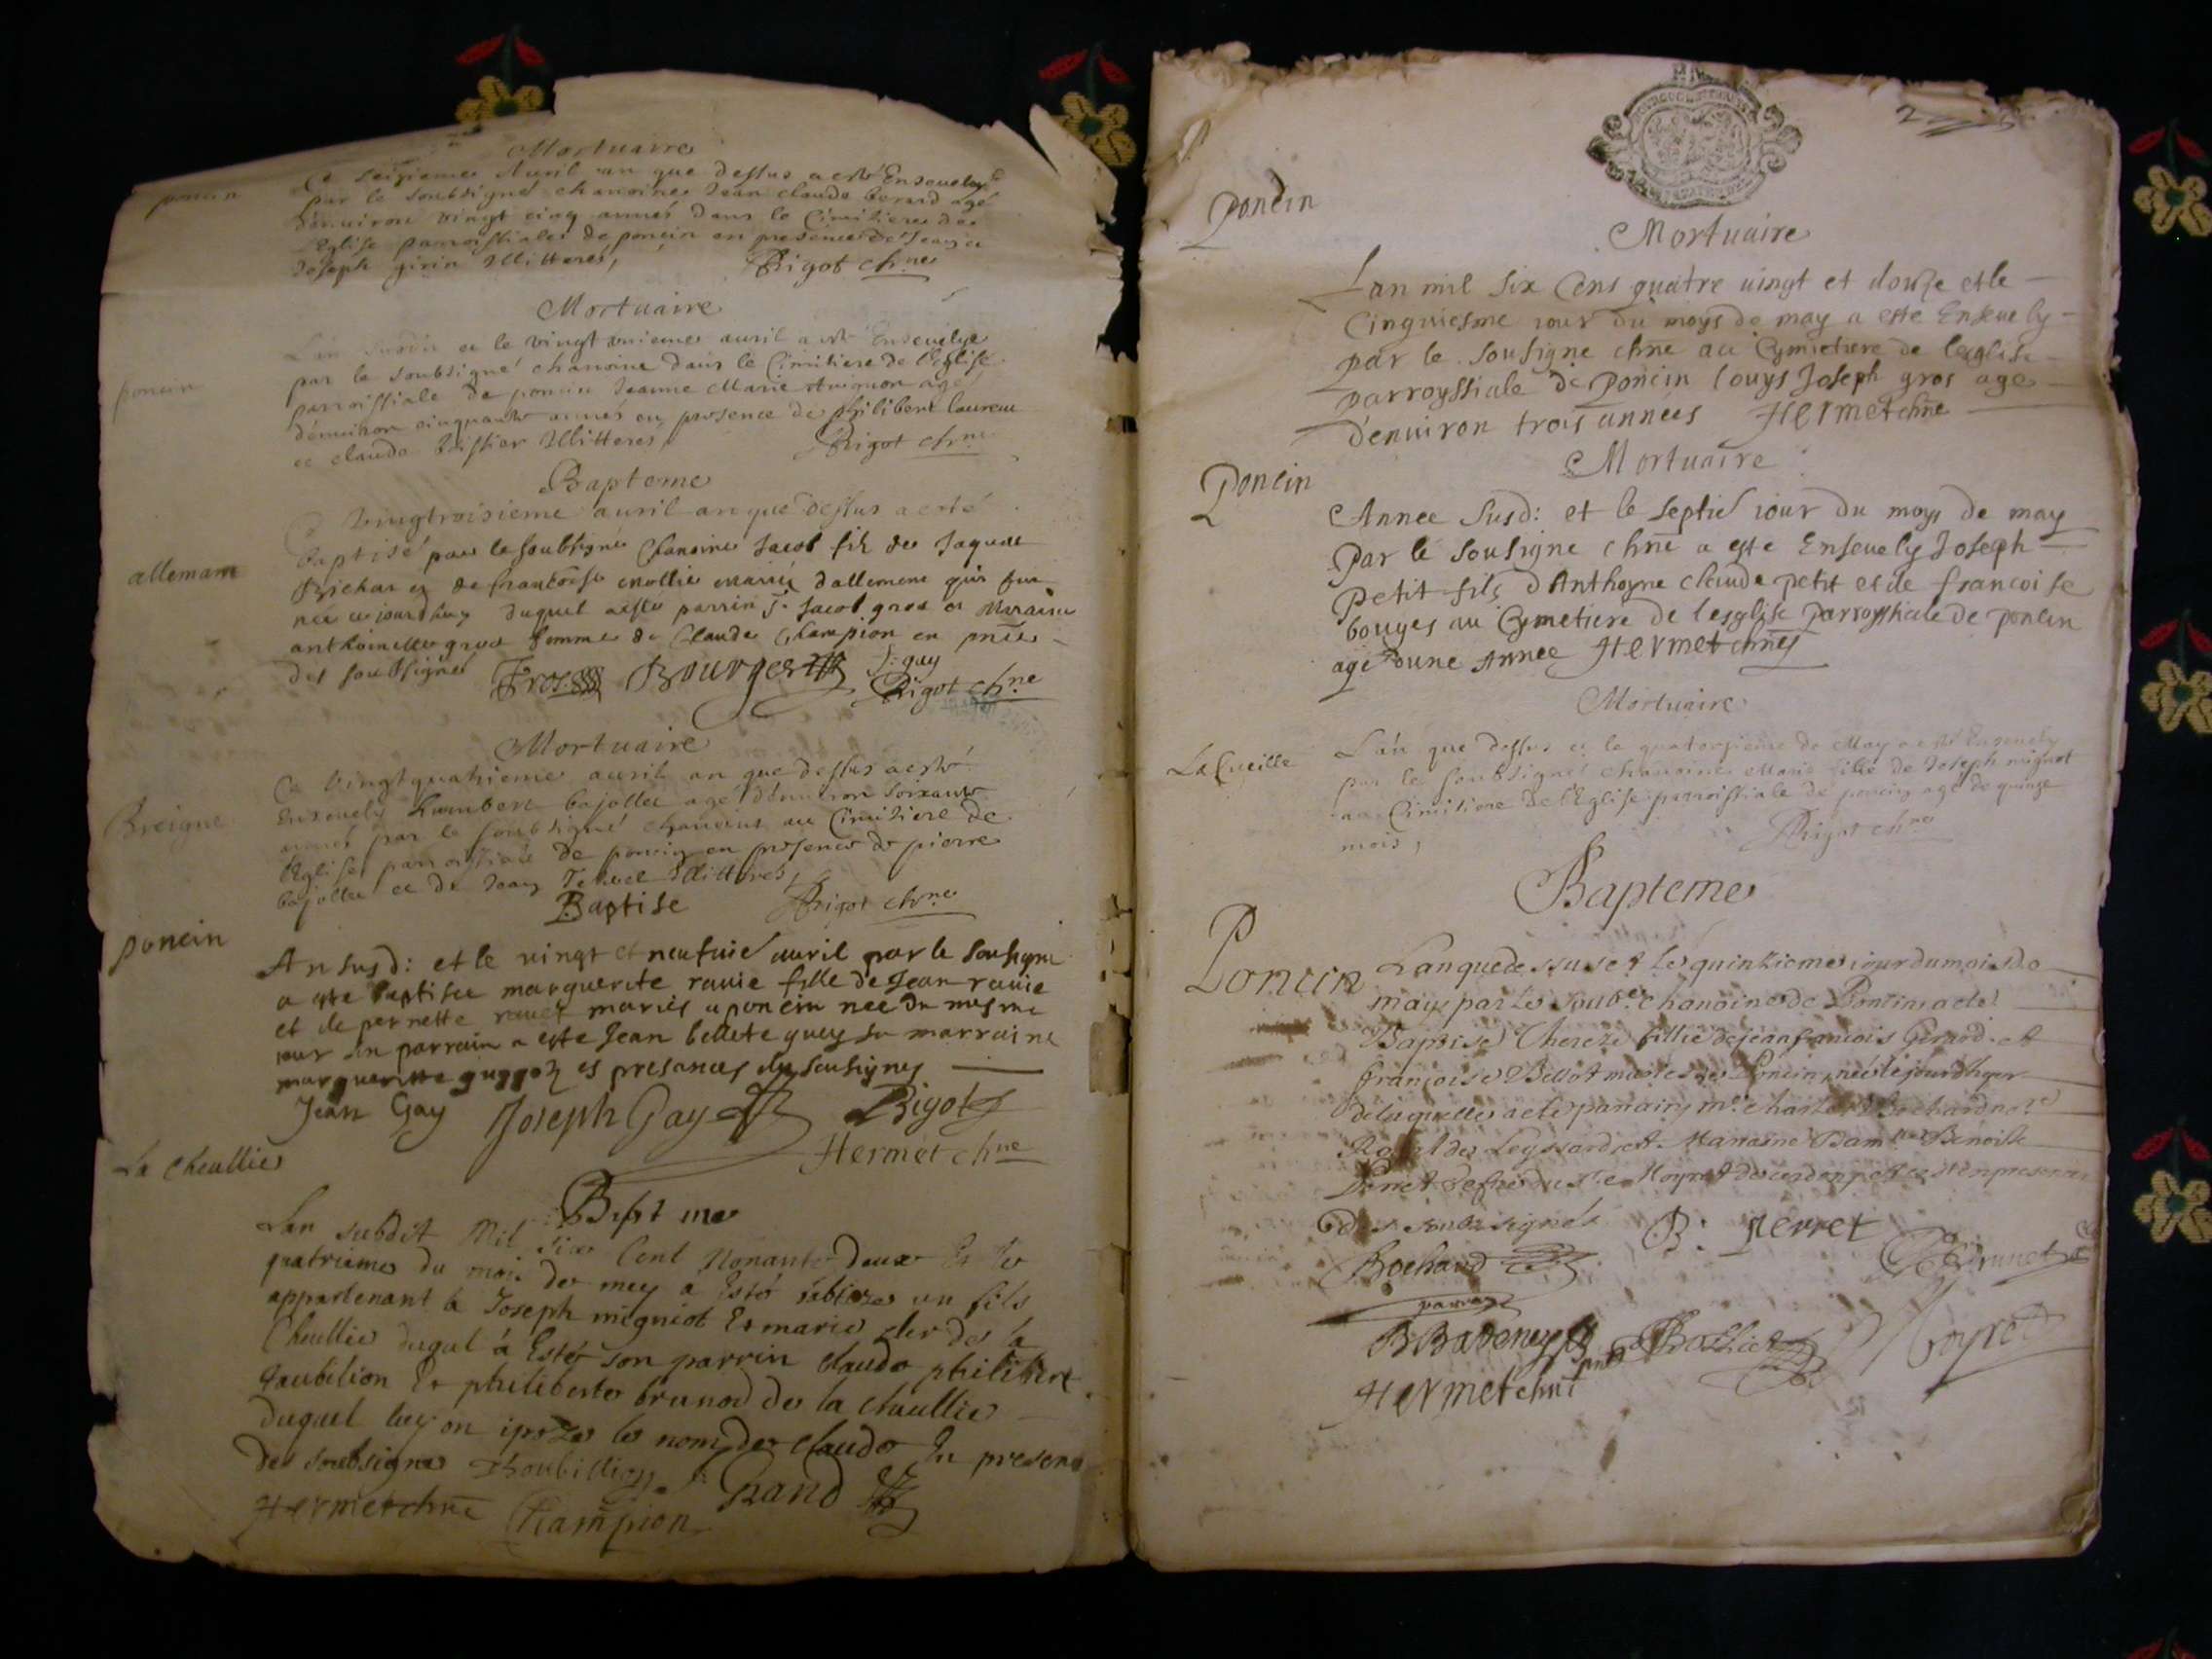 Mortuaire
poncin
Ce seizieme Auril an que dessus a esté Enseuely
par le soubsigné chanoine Jean claude berard agé
d'enuiron vingt cinq année dans le Cimitiere de
l'Eglise parroissiale de poncin en presence de Jean et
Joseph girin Illitteres,
Rigot chne
Mortuaire
poncin
L'an susdit et le vingt unieme auril a esté Enseuelye
par le soubsigné chanoine dans le Cimitiere de l'Eglise
parroissiale de poncin Jeanne Marie Auignon agé
d'enuiron cinquante années en presence de philibert laureu
et claude Tissier Illitteres,
Rigot chne
Bapteme
allemam
Ce vingtroisieme auril an que dessus a esté
baptisé par le soubsigné Chanoine Jacob fils de Jaques
Brichar et de francoise mollie mariés d'allemene qui fut
né ce jourdhuy duquel a esté parrin Sr Jacob gros et Marraine
anthoinette gros femme de Claude Champion en pnce
des soubsignés
Gros Bourges J: gay
Rigot chne
Mortuaire
Breigne
Ce vingt quatrieme auril an que dessus a esté
Enseuely humbert bajollet agé d'enuiron soixante
années par le soubsigné chanoine au Cimitiere de
l'Eglise parroissiale de poncin en presence de pierre
bajollet et de Jean Illitteres,
Rigot chne
Baptise
poncin
An susd: et le vingt et neufuie auril par le sousigne
a este baptisee marguerite rauie fille de Jean rauie
et de pernette mariés a poncin nee du mesme
iour son parrain a este Jean bellete guey sa marraine
marguerite guygoz es presances des sousignes
Jean Gay Joseph Gay Rigot
Hermet chne
La Cheullie
Bapt me
Lan subdit Mil Six Cent Nonante Deux Et le
quatrieme du mois de mey a Esté un fils
appartenant à Joseph migniot Et marie cler de la
Cheullie duquel à Esté son parrin claude philibert
Taubilion Et philiberte brunod de la cheullie
duquel luy on ipoze le nom de claude En presence
des soubsignes Thoubillion Grand
Hermet chne Champion
2
Poncin
Mortuaire
Lan mil six Cens quatre uingt et douze et le
Cinquiesme iour du moys de may a este Enseuely
par le sousigne chne au Cymetiere de lesglise
parroyssiale de Poncin louys Joseph gros age
d'enuiron trois années Hermet chne
Mortuaire
Poncin
Annee susd: et le septie iour du moys de may
Par le sousigne chne a este Enseuely Joseph
Petit fils d'Anthoyne claude petit et de francoise
bouges au Cymetiere de lesglise parroyssiale de poncin
agé d'une Annee Hermet chne
Mortuaire
La Cueille
L'an que dessus et le quatorzieme de May a esté Enseuely
par le soubsigné chanoine Marie fille de Joseph mignot
au Cimitiere de l'Eglise parroissiale de poncin agé de quinze
mois,
Rigot chne
Bapteme
Poncin
Lan que dessus et le quinzieme iour du mois de
may par le soubné chanoine de Poncin a eté
Baptisé Thereze fillie de jean francois Gerard et
francoise Billot mariés de Poncin, née le jourdhuy
de laquelle a eté parrain mre charles Bochard notre
Royal de Leyssard et Marraine Damlle Benoite
Perret femme du Sr Moyret de cerdon et ce en presence
des soubzsignés
B: perret
Bochard Brunet
parrain
B Badeney Moyret
Hermet chne